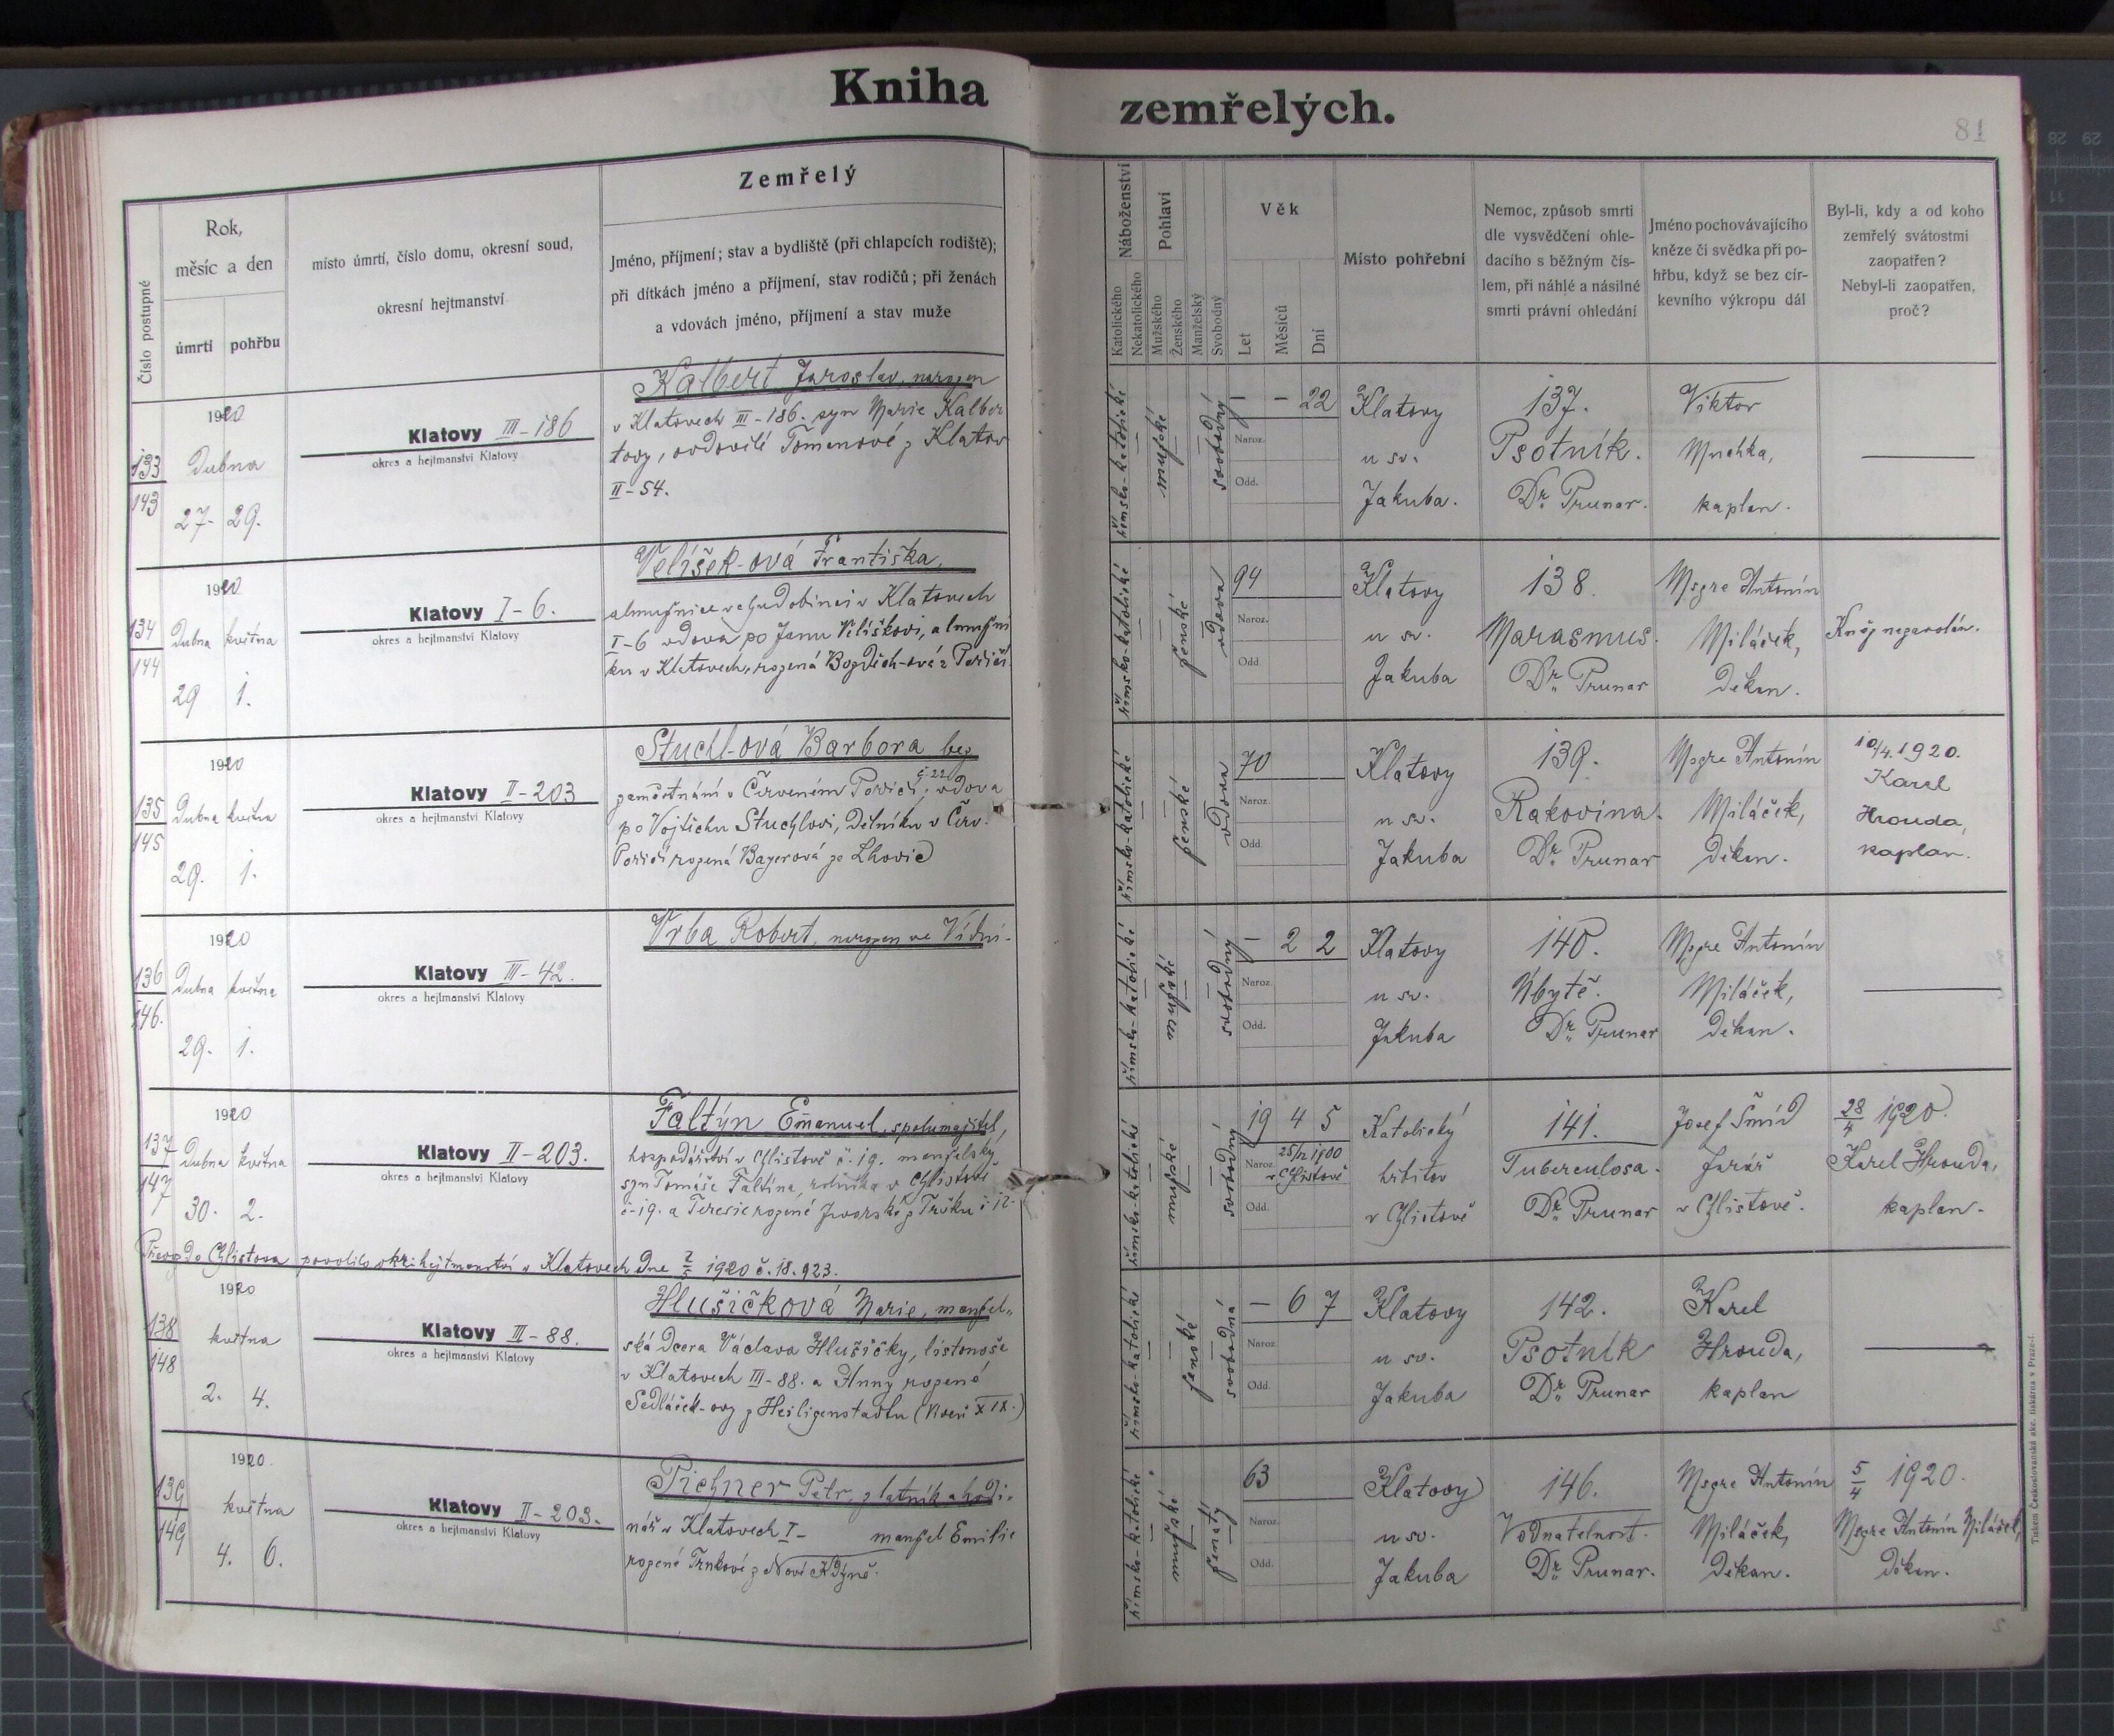 Kniha zemřelých.
81
Číslo postupné
Rok,
měsíc a den
úmrtí pohřbu
místo úmrtí, číslo domu, okresní soud,
okresní hejtmanství
Zemřelý
Jméno, příjmení; stav a bydliště (při chlapcích rodiště);
při dítkách jméno a příjmení, stav rodičů; při ženách
a vdovách jméno, příjmení a stav muže
Náboženství
Katolického
Nekatolického
Pohlaví
Mužského
Ženského
Manželský
Svobodný
Věk
Let
Měsíců
Dní
Místo pohřební
Nemoc, způsob smrti
dle vysvědčení ohle-
dacího s běžným čís-
lem, při náhlé a násilné
smrti právní ohledání
Jméno pochovávajícího
kněze či svědka při po-
hřbu, když se bez cír-
kevního výkropu dál
Byl-li, kdy a od koho
zemřelý svátostmi
zaopatřen?
Nebyl-li zaopatřen,
proč?
133
143
1920
Dubna
27. 29.
Klatovy III-186
okres a hejtmanství Klatovy
Kalbert Jaroslav, narozen
v Klatovech III-186. syn Marie Kalber
tovy, ovdovělé Tomanové z Klatov
II-54.
římsko-katolické
mužské
svobodný
- - 22
Naroz.
Odd.
Klatovy
u sv.
Jakuba.
137.
Psotník.
Dr. Prunar.
Viktor
Muchka,
kaplan.
134
144
1920
Dubna května
29 1.
Klatovy I-6.
okres a hejtmanství Klatovy
Velíšek-ová Františka,
almužnice v Chudobinci v Klatovech
I-6 vdova po Janu Velíškovi, almužní
ku v Klatovech, rozená Bogdich-ová z Poříčí
římsko-katolické
ženské
vdova
94
Naroz.
Odd.
Klatovy
u sv.
Jakuba
138.
Marasmus.
Dr. Prunar
Msgre Antonín
Miláček,
Děkan.
Kněz nezavolán.
135
145
1920
Dubna května
29. 1.
Klatovy II-203
okres a hejtmanství Klatovy
Stuchl-ová Barbora bez
zaměstnání v Červeném Poříčí č. 22, vdova
po Vojtěchu Stuchlovi, Dělníku v Červ.
Poříčí rozená Bayerová ze Lhovic
římsko-katolické
ženské
vdova
70
Naroz.
Odd.
Klatovy
u sv.
Jakuba
139.
Rakovina.
Dr. Prunar
Msgre Antonín
Miláček,
Děkan.
10/4. 1920.
Karel
Hrouda,
kaplan.
136
146.
1920
Dubna května
29. 1.
Klatovy III-42.
okres a hejtmanství Klatovy
Vrba Robert, narozen ve Vídni.
římsko-katolické
mužské
svobodný
- 2 2
Naroz.
Odd.
Klatovy
u sv.
Jakuba
140.
Úbytě.
Dr. Prunar
Msgre Antonín
Miláček,
Děkan.
137
147
1920
Dubna května
30. 2.
Klatovy II-203.
okres a hejtmanství Klatovy
Faltýn Emanuel, spolumajitel,
hospodářství v Chlistově č. 19. manželský
syn Tomáše Faltína, rolníka v Chlistově
č. 19. a Terezie rozené Javorské z Tržku č. 12.
Převoz Do Chlistova povolilo okr. hejtmanství v Klatovech Dne 2/5 1920 č. 18.923.
římsko-katolické
mužské
svobodný
19 4 5
Naroz. 25/12 1900
v Chlistově
Odd.
Katolický
hřbitov
v Chlistově
141.
Tuberculosa.
Dr. Prunar
Josef Šmíd
farář
v Chlistově.
28/4 1920.
Karel Hrouda,
kaplan.
138
148
1920
května
2. 4.
Klatovy III-88.
okres a hejtmanství Klatovy
Hlušičková Marie, manžel-
ská Dcera Václava Hlušičky, listonoše
v Klatovech III-88. a Anny rozené
Sedláček-ovy z Heiligenstadtu (Vídeň XIX.)
římsko-katolické
ženské
svobodná
- 6 7
Naroz.
Odd.
Klatovy
u sv.
Jakuba
142.
Psotník
Dr. Prunar
Karel
Hrouda,
kaplan
139
149
1920.
května
4. 6.
Klatovy II-203.
okres a hejtmanství Klatovy
Pichner Petr, zlatník a hodi-
nář v Klatovech I- manžel Emilie
rozené Trnkové z Nové Kdyně.
římsko-katolické
mužské
ženatý
63
Naroz.
Odd.
Klatovy
u sv.
Jakuba
146.
Vodnatelnost.
Dr. Prunar.
Msgre Antonín
Miláček,
Děkan.
5/4 1920.
Msgre Antonín Miláček,
Děkan.
Tiskem Československá akc. tiskárna v Praze-I.